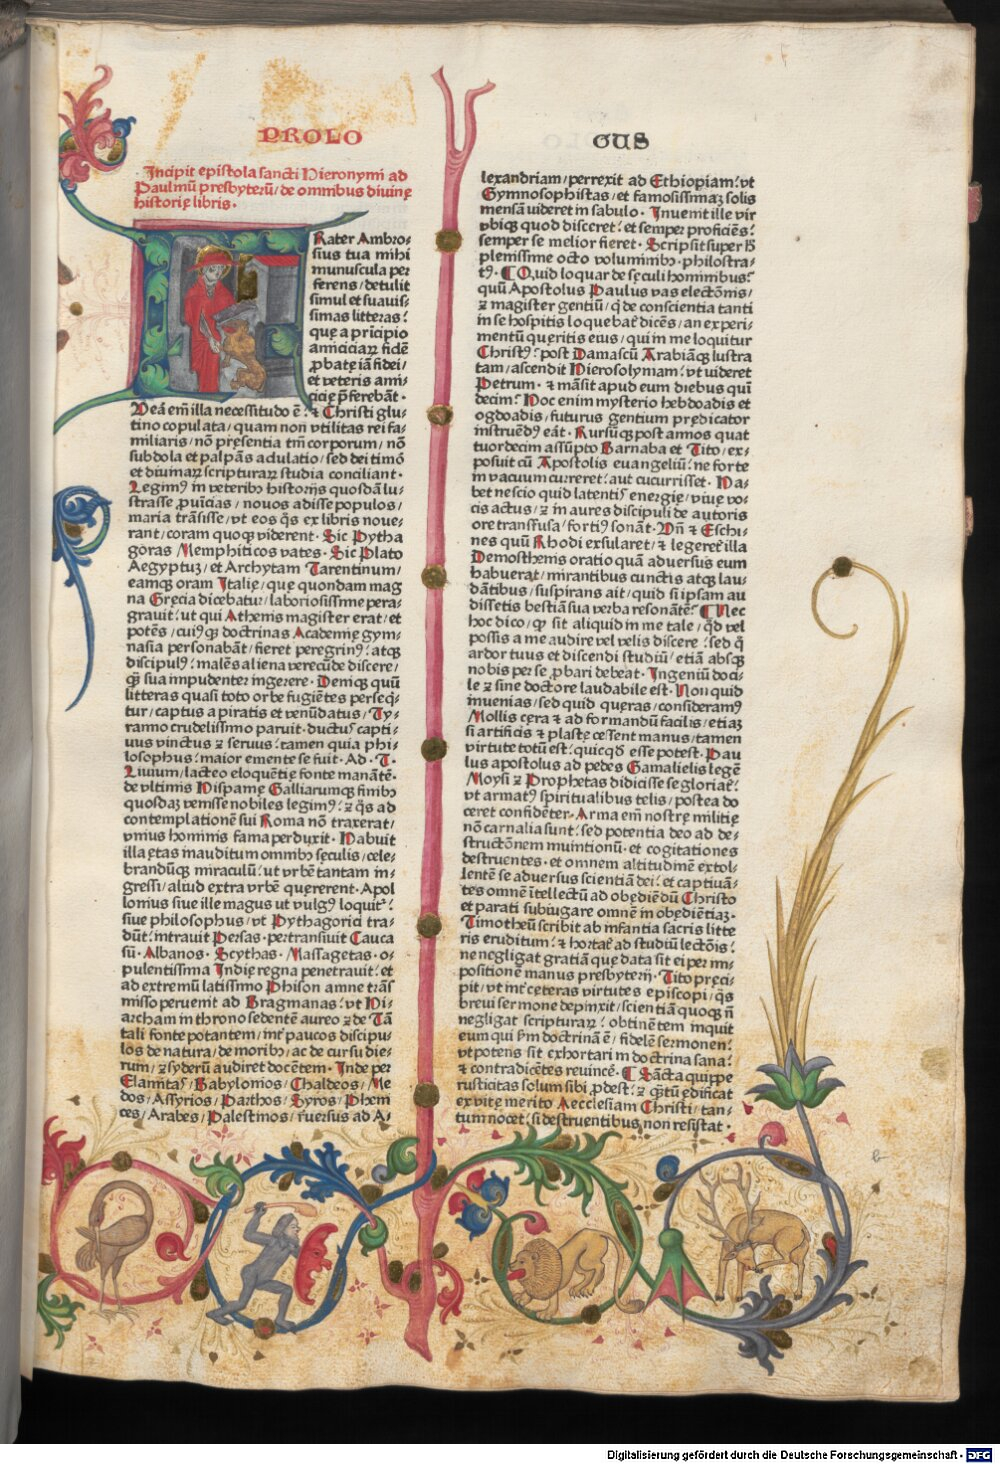 PROLO
GUS
Incipit epistola sancti Hieronymi ad
Paulinū presbyterū/de omnibus diuinę
historię libris.
FRater Ambro-
sius tua mihi
munuscula per
ferens/detulit
simul et suauis-
simas litteras:
que a prīcipio
amiciciaꝝ fidē
ꝓbatę iā fidei/
et veteris ami-
cicię p̄ferebāt.
Ueā em̄ illa necessitudo ē: ⁊ Christi glu-
tino copulata/quam non vtilitas rei fa-
miliaris/nō pręsentia tm̄ corporum/nō
subdola et palpās adulatio/sed dei timō
et diuinaꝝ scripturaꝝ studia conciliant.
Legimꝰ in veteribꝫ historijs quosdā lu-
strasse ꝓuīcias/nouos adisse populos/
maria trāsisse/vt eos q̄s ex libris noue-
rant/coram quoqꝫ viderent. Sic Pytha
goras Memphiticos vates. Sic Plato
Aegyptuꝫ/et Archytam Tarentinum/
eamqꝫ oram Italię/que quondam mag
na Gręcia dicebatur/laboriosissime pera-
grauit: ut qui Athenis magister erat/et
potēs/cuiꝰqꝫ doctrinas Academię gym-
nasia personabāt/fieret peregrinꝰ: atqꝫ
discipulꝰ: malēs aliena verecūde discere/
q̄ꝫ sua impudenter ingerere. Deniqꝫ quū
litteras quasi toto orbe fugiētes perseq̄-
tur/captus a piratis et venūdatus/Ty-
ranno crudelissimo paruit: ductꝰ capti-
uus vinctus ⁊ seruus: tamen quia phi-
losophus: maior emente se fuit. Ad. T.
Liuium/lacteo eloquētię fonte manātē.
de vltimis Hispanię Galliarumqꝫ finibꝫ
quosdaꝫ venisse nobiles legimꝰ: ⁊ q̄s ad
contemplationē sui Roma nō traxerat/
vnius hominis fama perduxit. Habuit
illa ętas inauditum omnibꝫ sęculis/cele-
brandūqꝫ miraculū: ut vrbē tantam in-
gressi/aliud extra vrbē quererent. Apol
lonius siue ille magus ut vulgꝰ loquit᷑:
siue philosophus/vt Pythagorici tra-
dūt: intrauit Persas. pertransiuit Cauca
sū. Albanos. Scythas. Massagetas. o-
pulentissima Indię regna penetrauit: et
ad extremū latissimo Phison amne trās
misso peruenit ad Bragmanas: vt Hi-
archam in throno sedentē aureo ⁊ de Tā
tali fonte potantem/int᷑ paucos discipu-
los de natura/de moribꝫ/ac de cursu die-
rum/⁊ syderū audiret docētem. Inde per
Elamitas/Babylonios/Chaldeos/Me
dos/Assyrios/Parthos/Syros/Phēni
ces/Arabes/Palestinos/r̄uersus ad A-
lexandriam/perrexit ad Ethiopiam: vt
Gymnosophistas/et famosissimaꝫ solis
mensā uideret in sabulo. Inuenit ille vir
vbiqꝫ quod disceret: et semper proficiēs:
semper se melior fieret. Scripsit super hͦ
plenissime octo voluminibꝫ. philostra-
tꝰ. ¶ Quid loquar de sęculi hominibus:
quū Apostolus Paulus vas electōnis/
⁊ magister gentiū/q̄ de conscientia tanti
in se hospitis loquebat᷑ dicēs/an experi-
mentū quęritis eius/qui in me loquitur
Christꝰ: post Damascū Arabiāqꝫ lustra
tam/ascendit Hierosolymam: vt uideret
Petrum. ⁊ māsit apud eum diebus quī
decim: Hoc enim mysterio hebdoadis et
ogdoadis/futurus gentium prędicator
instruēdꝰ eāt. Rursūqꝫ post annos quat
tuordecim assūpto Barnaba et Tito/ex-
posuit cū Apostolis euangeliū: ne forte
in vacuum curreret: aut cucurrisset. Ha-
bet nescio quid latentis energię/viuę vo-
cis actus/⁊ in aures discipuli de autoris
ore transfusa/fortiꝰ sonāt. Un̄ ⁊ Eschi-
nes quū Rhodi exsularet/⁊ legeret᷑ illa
Demosthenis oratio quā aduersus eum
habuerat/mirantibus cunctis atqꝫ lau-
dātibus/suspirans ait/quid si ipsam au
dissetis bestiā sua verba resonātē: ¶ Nec
hoc dico/ꝙ sit aliquid in me tale/q̄d vel
possis a me audire vel velis discere: sed q̄
ardor tuus et discendi studiū/etiā absqꝫ
nobis per se ꝓbari debeat. Ingeniū doci-
le ⁊ sine doctore laudabile est. Non quid
inuenias/sed quid quęras/consideramꝰ
Mollis cęra ⁊ ad formandū facilis/etiaꝫ
si artificis ⁊ plastę cessent manus/tamen
virtute totū est: quicq̄d esse potest. Pau
lus apostolus ad pedes Gamalielis legē
Moysi ⁊ Prophetas didicisse se gloriat᷑:
vt armatꝰ spiritualibus telis/postea do
ceret confidēter. Arma em̄ nostrę militię
nō carnalia sunt: sed potentia deo ad de-
structōnem munitionū. et cogitationes
destruentes. et omnem altitudinē extol-
lentē se aduersus scientiā dei: et captiuā-
tes omnē ītellectū ad obediēdū Christo
et parati subiugare omnē inobediētiaꝫ.
Timotheū scribit ab infantia sacris litte
ris eruditum: ⁊ hortat᷑ ad studiū lectōis:
ne negligat gratiā que data sit ei per im-
positionē manus presbyterij. Tito pręci-
pit/vt int᷑ ceteras virtutes episcopi/q̄s
breui sermone depinxit/scientiā quoqꝫ n̄
negligat scripturaꝝ: obtinētem inquit
eum qui s̄m doctrinā ē/fidelē sermonem:
vt potens sit exhortari in doctrina sana:
⁊ contradicētes reuincē. ¶ Sācta quippe
rusticitas solum sibi ꝓdest: ⁊ q̄ꝫtū ędificat
ex vitę merito Aecclesiam Christi/tan-
tum nocet: si destruentibus non resistat.
Digitalisierung gefördert durch die Deutsche Forschungsgemeinschaft - DFG